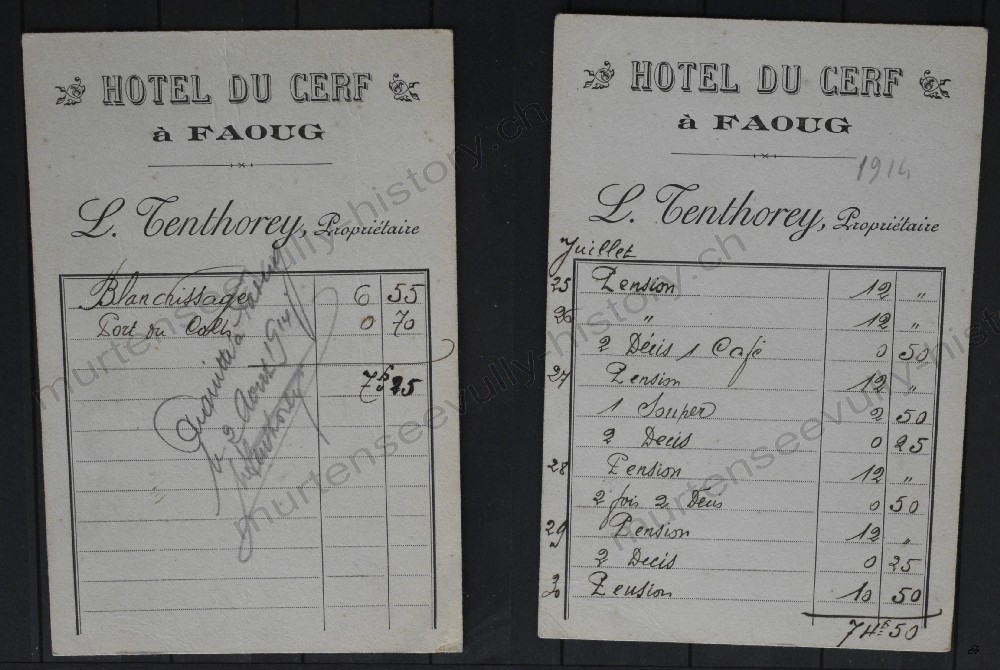 HOTEL DU CERF
à FAOUG
L. Tenthorey, Propriétaire
Blanchissage 6 55
Port du Colis 0 70
7 fr 25
Acquitté à Faoug
le 2 Août 1914
L. Tenthorey
HOTEL DU CERF
à FAOUG
1914
L. Tenthorey, Propriétaire
Juillet
25 Pension 12 "
26 " 12 "
2 Décis 1 Café 0 50
27 Pension 12 "
1 Souper 2 50
2 Decis 0 25
28 Pension 12 "
2 fois 2 Décis 0 50
29 Pension 12 "
2 Decis 0 25
30 Pension 10 50
74 fr 50
murtenseevully-history.ch
murtenseevully-history.ch
murtenseevully-history.ch